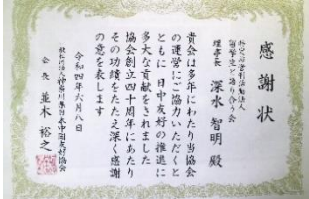 感謝状
特定非営利活動法人
留学生と語り合う会
理事長 深水 智明 殿
貴会は多年にわたり当協会
の運営にご協力いただくと
ともに 日中友好の推進に
多大な貢献をされました
協会創立四十周年にあたり
その功績をたたえ深く感謝
の意を表します
令和四年六月八日
神奈川県日本中国友好協会
会長 並木 裕之